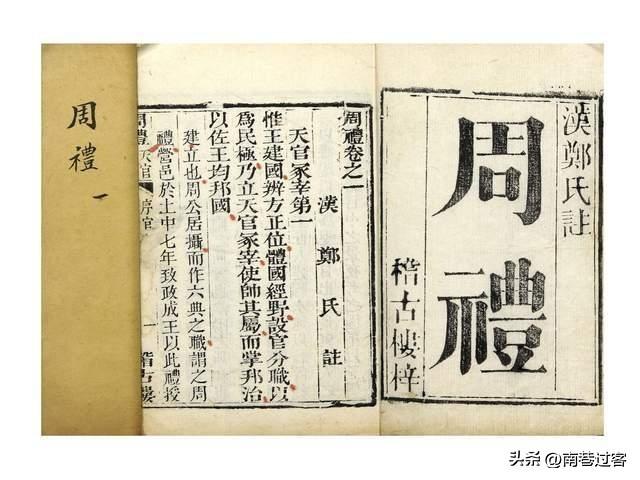 漢鄭氏註
周禮
稽古樓梓
周禮卷之一
漢鄭氏註
天官冢宰第一
惟王建國辨方正位體國經野設官分職以
爲民極乃立天官冢宰使帥其屬而掌邦治
以佐王均邦國
建立也周公居攝而作六典之職謂之周
禮營邑於土中七年致政成王以此禮授
周禮天官 序官 一 稽古樓
周禮 一
头条 @南巷过客